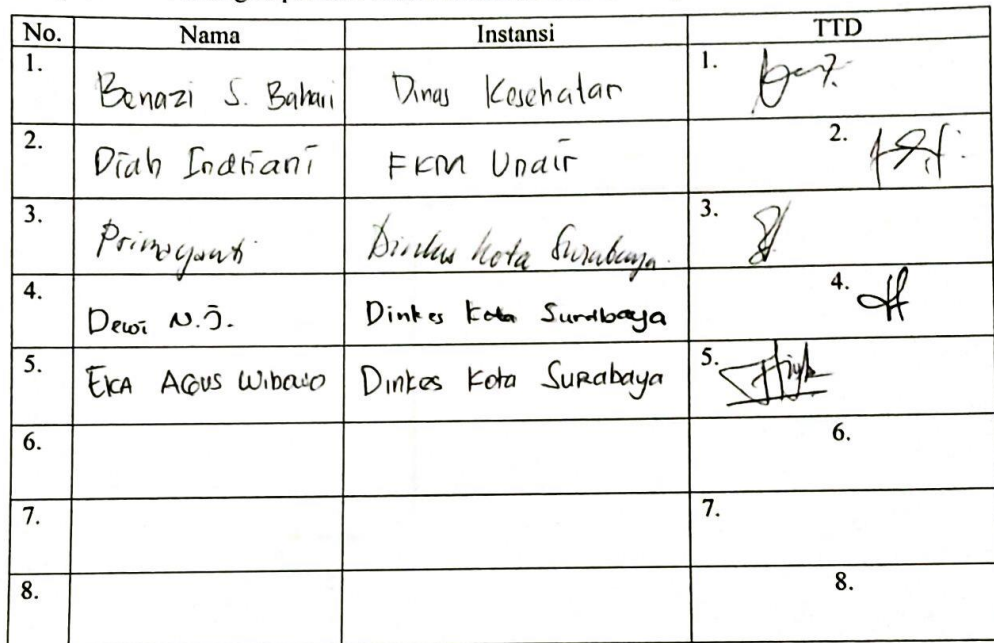 No. Nama Instansi TTD
1. Benazi S. Bahari Dinas Kesehatan 1.
2. Diah Indriani FKM Unair 2.
3. Primayanti Dinkes Kota Surabaya 3.
4. Dewi N.J. Dinkes Kota Surabaya 4.
5. EKA AGUS Wibowo Dinkes Kota SuRabaya 5.
6. 6.
7. 7.
8. 8.